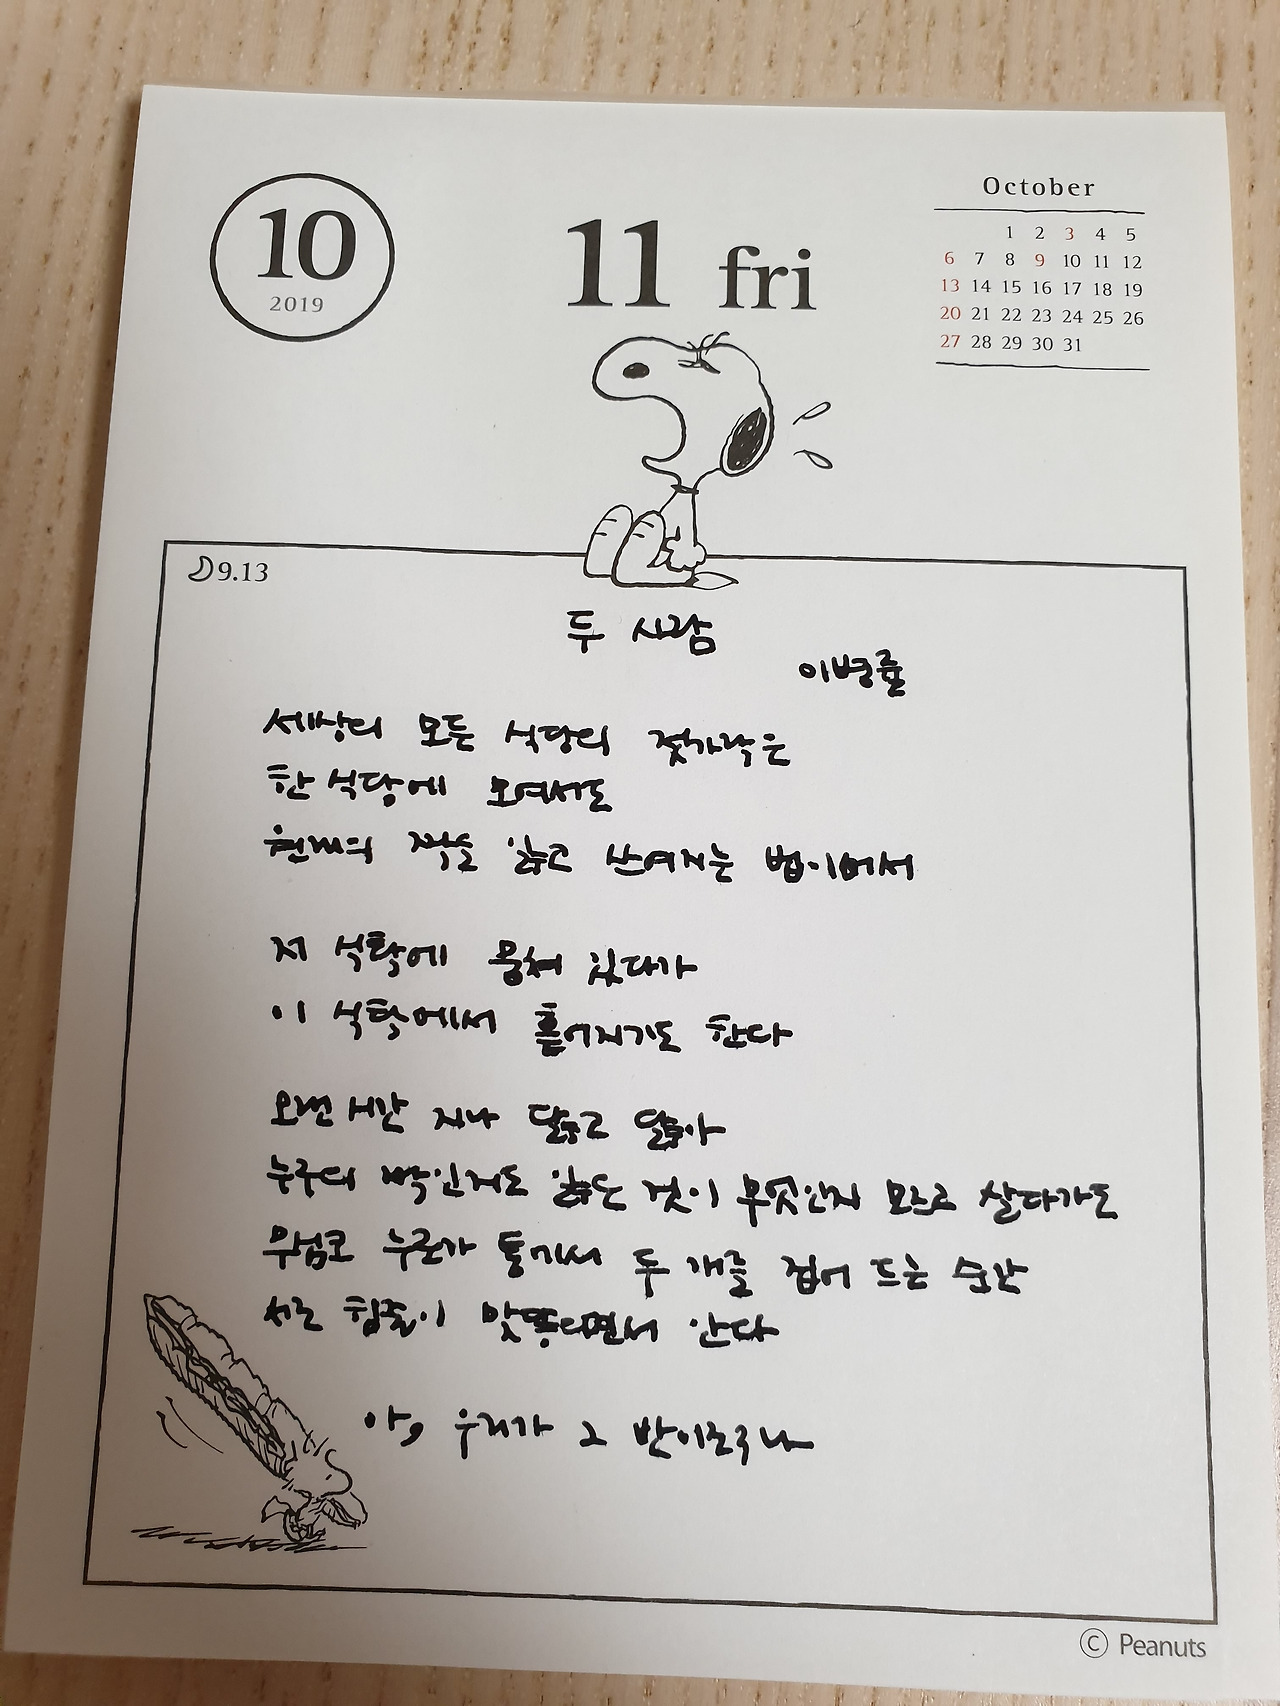 10
2019
11 fri
October
1 2 3 4 5
6 7 8 9 10 11 12
13 14 15 16 17 18 19
20 21 22 23 24 25 26
27 28 29 30 31
9.13
두 사람
이병률
세상의 모든 식당의 젓가락은
한 식당에 모여서도
원래의 짝을 잃고 쓰여지는 법이어서
저 식탁에 뭉쳐 있다가
이 식탁에서 흩어지기도 한다
오랜 시간 지나 닳고 닳아
누구의 짝인지도 잃은 것이 무엇인지 모르고 살다가도
무심코 누군가 통에서 두 개를 집어 드는 순간
서로 힘줄이 맞닿으면서 안다
아, 우리가 그 반이로구나
© Peanuts